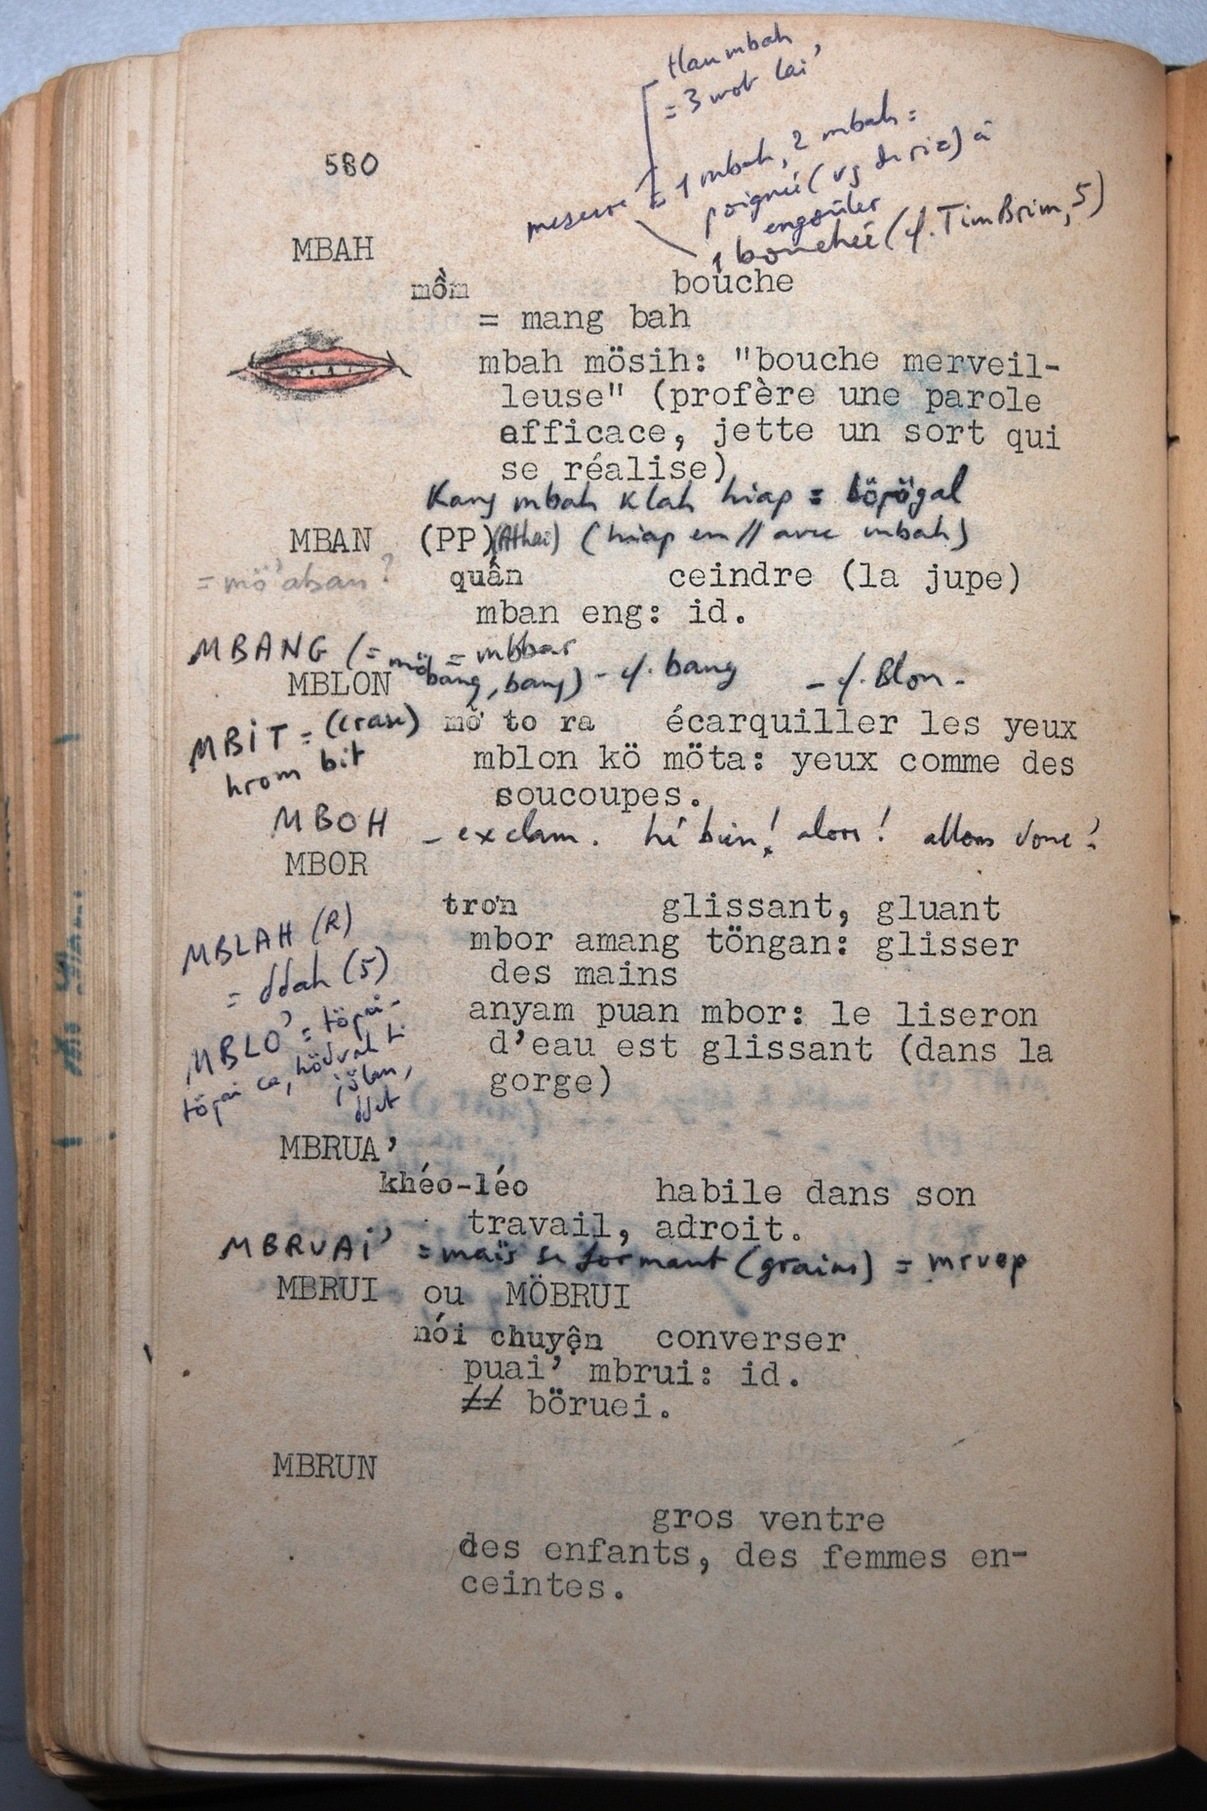 tlau mbah
= 3 wot lai'
580
mesure = 1 mbah, 2 mbah =
poignée (vg du riz) à
engouler
1 bouchée (cf. Tim Brim, 5)
MBAH
mồm bouche
= mang bah
mbah mösih: "bouche merveil-
leuse" (profère une parole
efficace, jette un sort qui
se réalise)
Kang mbah klah hiap = böpögal
MBAN (PP) (Athai) (hiap en // avec mbah)
= mö'aban? quấn ceindre (la jupe)
mban eng: id.
MBANG (= mö = mbbar
bang, bang) - cf. bang
MBLON - cf. Blon -
MBIT = (crase) mở to ra écarquiller les yeux
hrom bit mblon kö möta: yeux comme des
soucoupes.
MBOH - exclam. hé bien! alors! allons donc!
MBOR
trơn glissant, gluant
MBLAH (R) mbor amang töngan: glisser
= ddah (5) des mains
anyam puan mbor: le liseron
MBLO' = töpai- d'eau est glissant (dans la
töpai ca, hödval
jölan, gorge)
ddet
MBRUA'
khéo-léo habile dans son
travail, adroit.
MBRUAI' = maïs se formant (grains) = mruep
MBRUI ou MÖBRUI
nói chuyện converser
puai' mbrui: id.
≠≠ böruei.
MBRUN
gros ventre
des enfants, des femmes en-
ceintes.